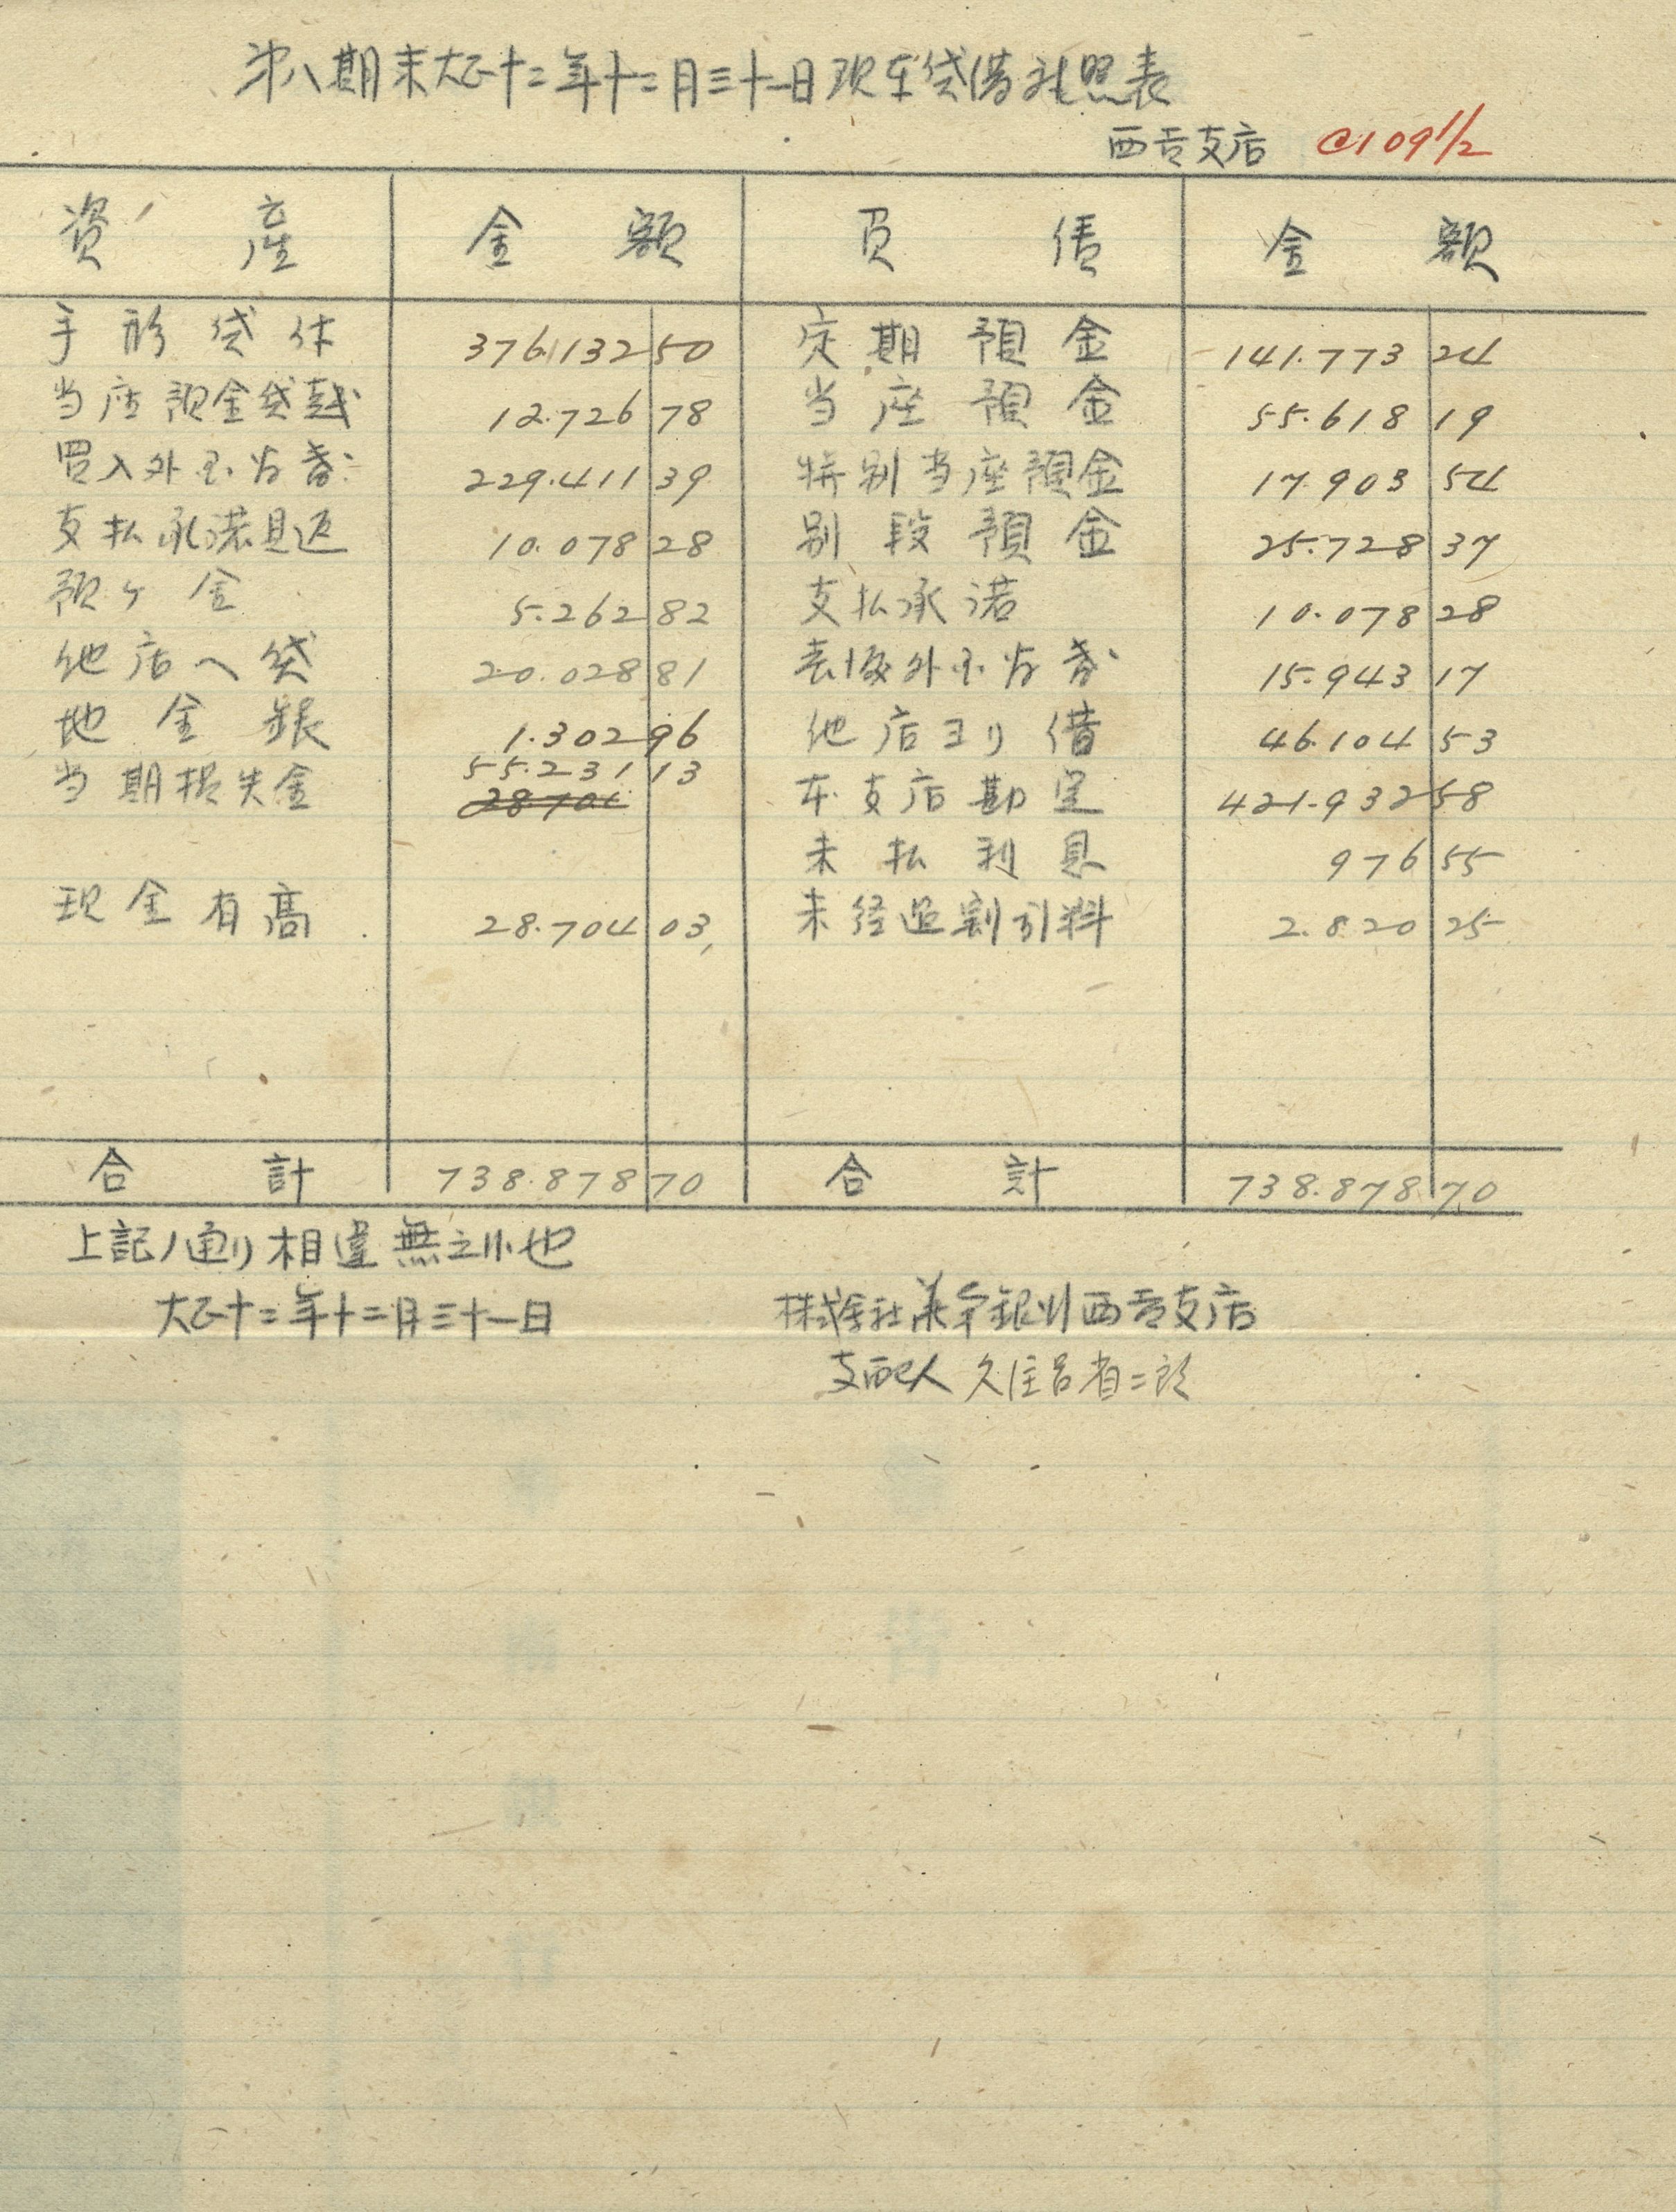 第八期末大正十二年十二月三十一日現在貸借対照表
西貢支店 @109 1/2
資産 金額 負債 金額
手形貸付 376.132 50 定期預金 141.773 24
当座預金貸越 12.726 78 当座預金 55.618 19
買入外国為替 229.411 39 特別当座預金 17.903 54
支払承諾見返 10.078 28 別段預金 25.728 37
預ケ金 5.262 82 支払承諾 10.078 28
他店へ貸 20.028 81 売渡外国為替 15.943 17
地金銀 1.302 96 他店ヨリ借 46.104 53
当期損失金 55.231 13 本支店勘定 421.932 58
28704
未払利息 976 55
現金有高 28.704 03 未経過割引料 2.820 25
合計 738.878 70 合計 738.878 70
上記ノ通リ相違無之候也
大正十二年十二月三十一日 株式会社 銀行西貢支店
支配人 久住呂省二郎